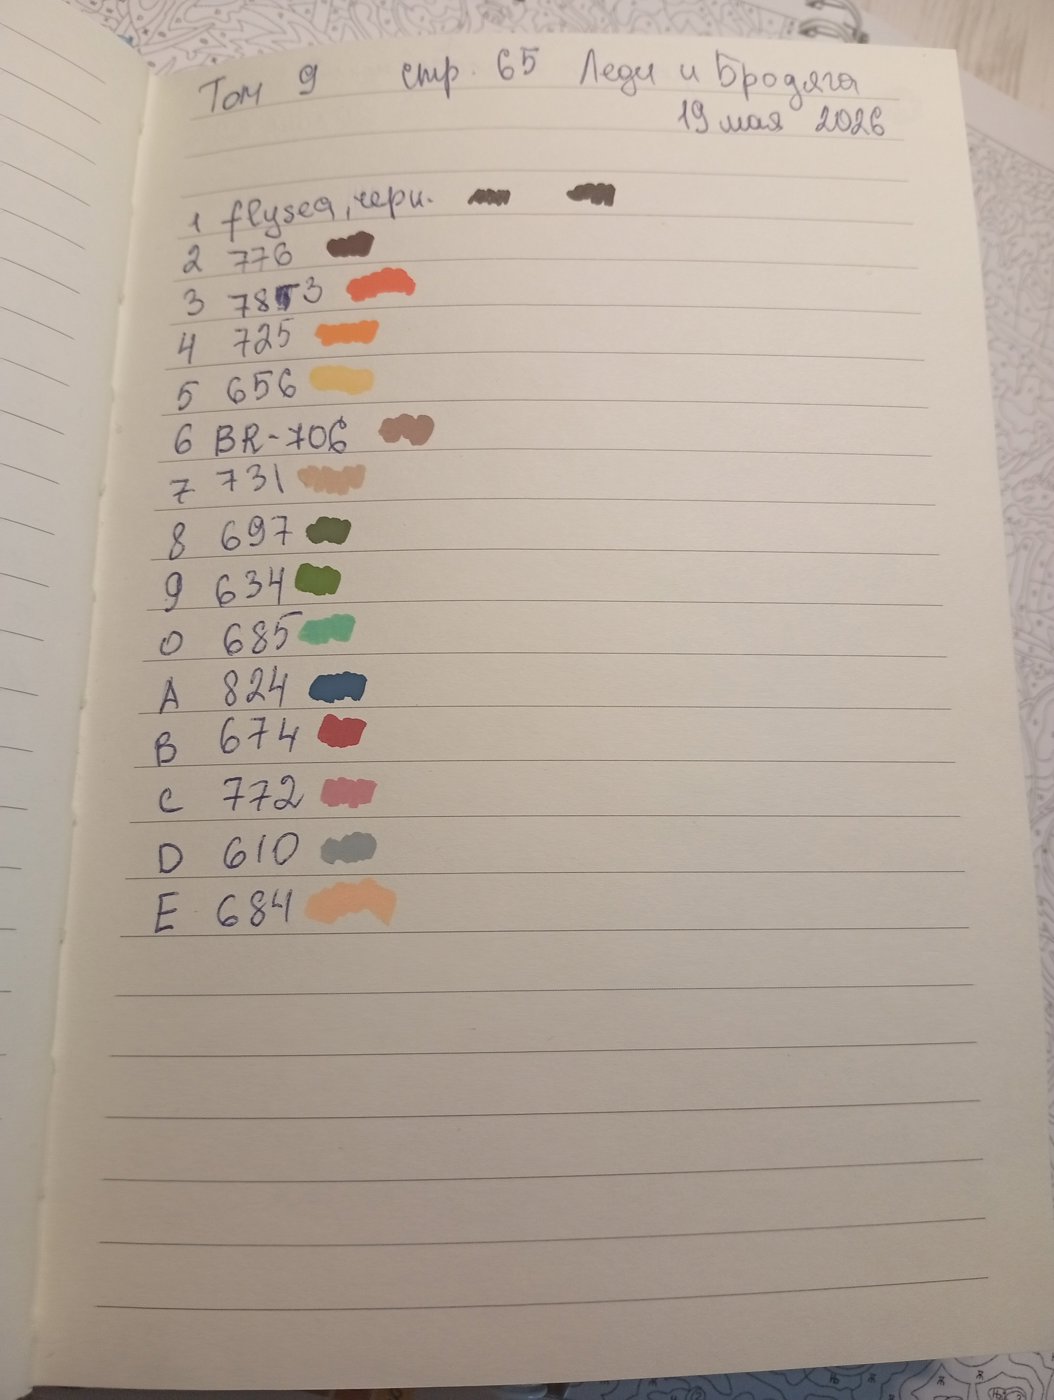 Том 9 стр. 65 Леди и Бродяга
19 мая 2026
1 flysea, черн.
2 776
3 783
4 725
5 656
6 BR-706
7 731
8 697
9 634
0 685
A 824
B 674
C 772
D 610
E 684